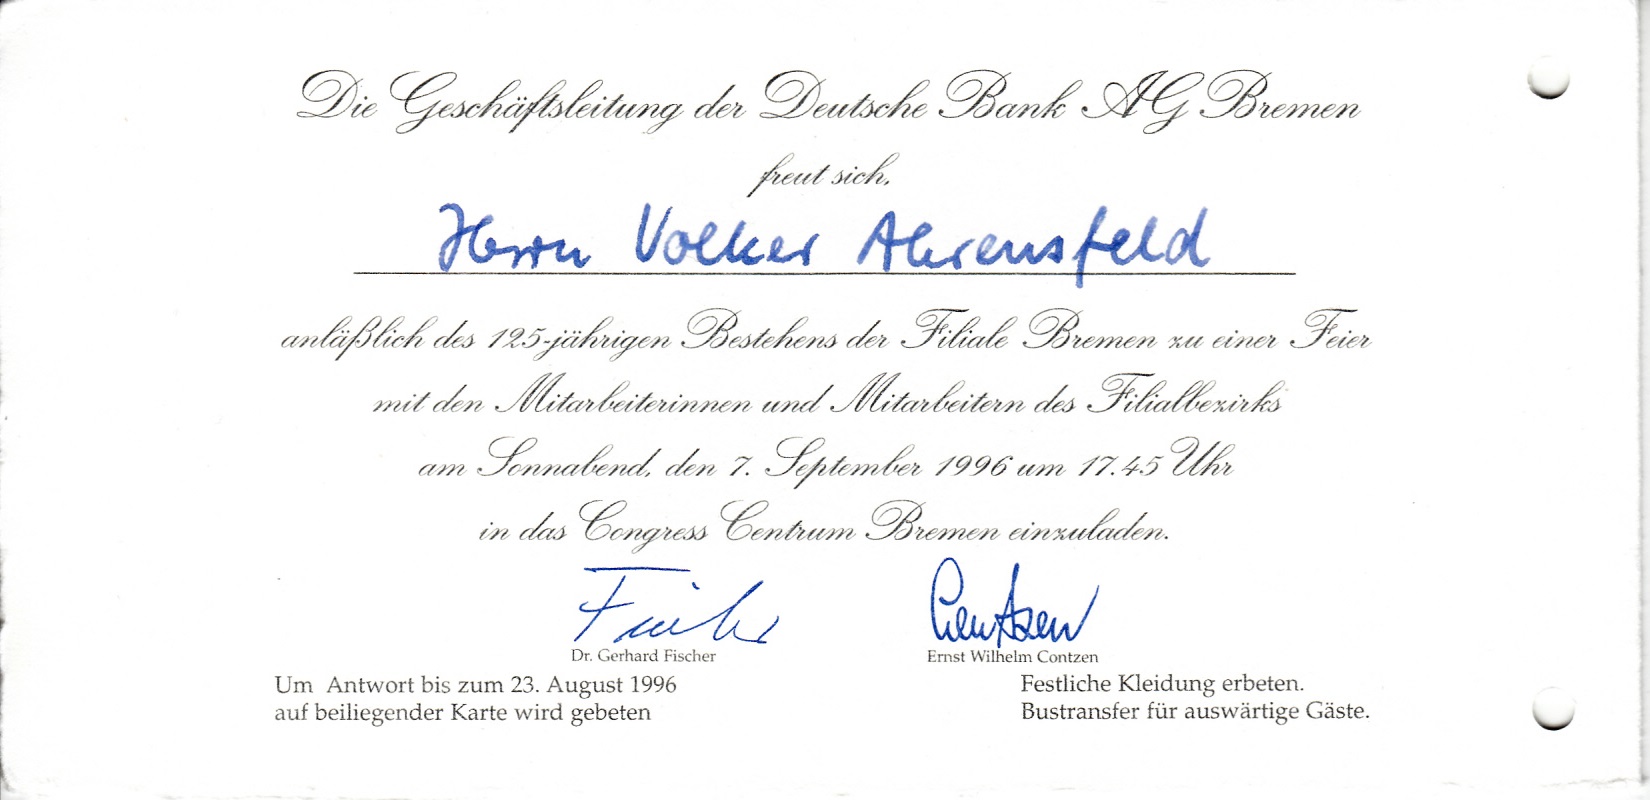 Die Geschäftsleitung der Deutsche Bank AG Bremen
freut sich,
Herrn Volker Ahrensfeld
anläßlich des 125-jährigen Bestehens der Filiale Bremen zu einer Feier
mit den Mitarbeiterinnen und Mitarbeitern des Filialbezirks
am Sonnabend, den 7. September 1996 um 17.45 Uhr
in das Congress Centrum Bremen einzuladen.
Fischer Contzen
Dr. Gerhard Fischer Ernst Wilhelm Contzen
Um Antwort bis zum 23. August 1996
auf beiliegender Karte wird gebeten
Festliche Kleidung erbeten.
Bustransfer für auswärtige Gäste.